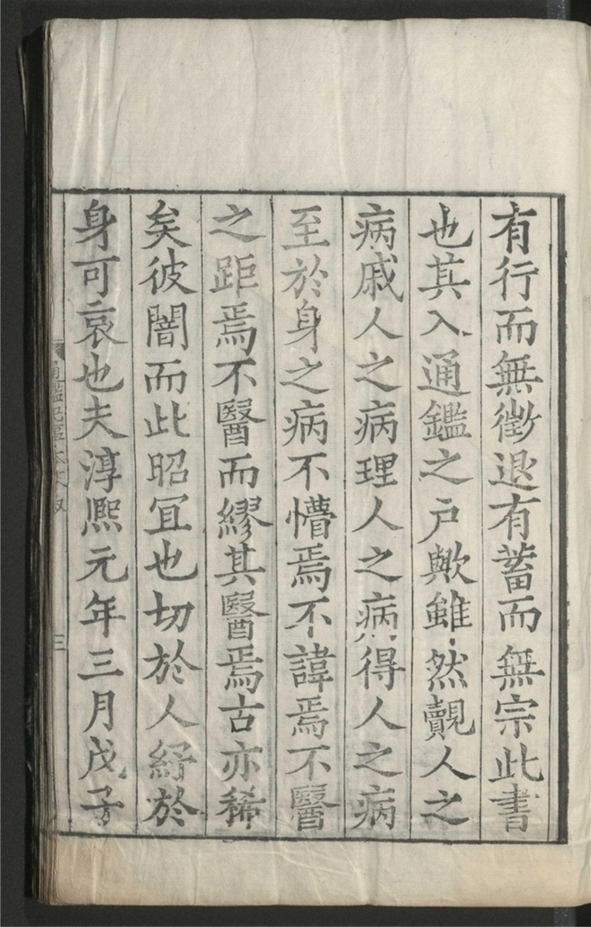 有行而無徵退有蓄而無宗此書
也其入通鑑之户歟雖然覿人之
病戚人之病理人之病得人之病
至於身之病不懵焉不諱焉不醫
之距焉不醫而繆其醫焉古亦稀
矣彼闇而此昭宜也切於人紓於
身可哀也夫淳熙元年三月戊子
三